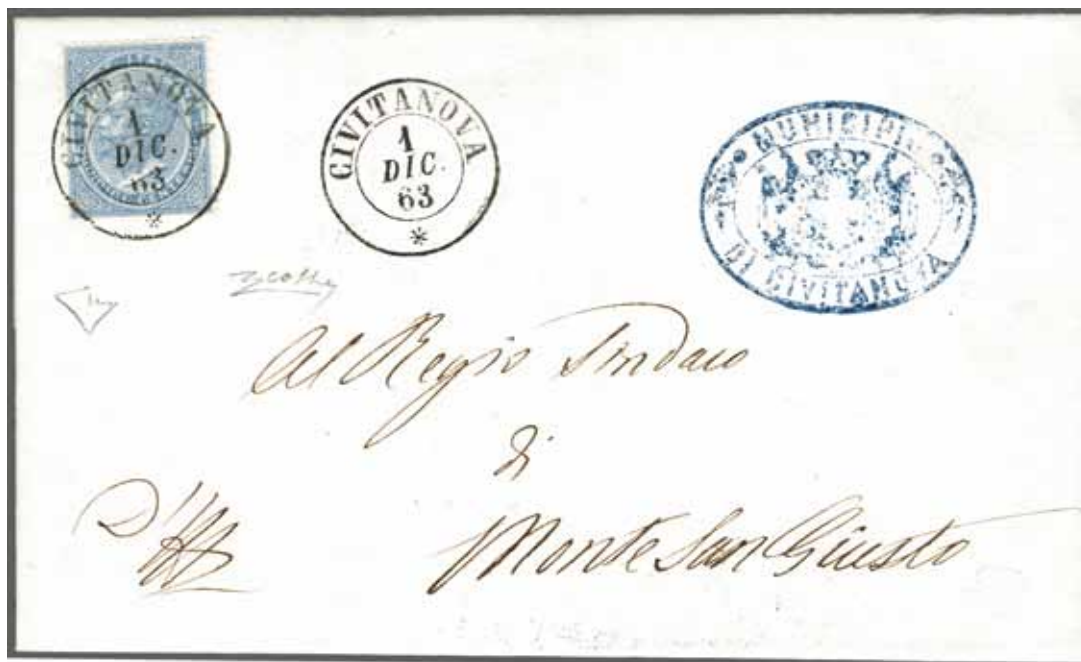 CIVITANOVA
1
DIC.
63
*
CIVITANOVA
1
DIC.
63
*
MUNICIPIO
DI CIVITANOVA
Al Regio Sindaco
di
Monte San Giusto